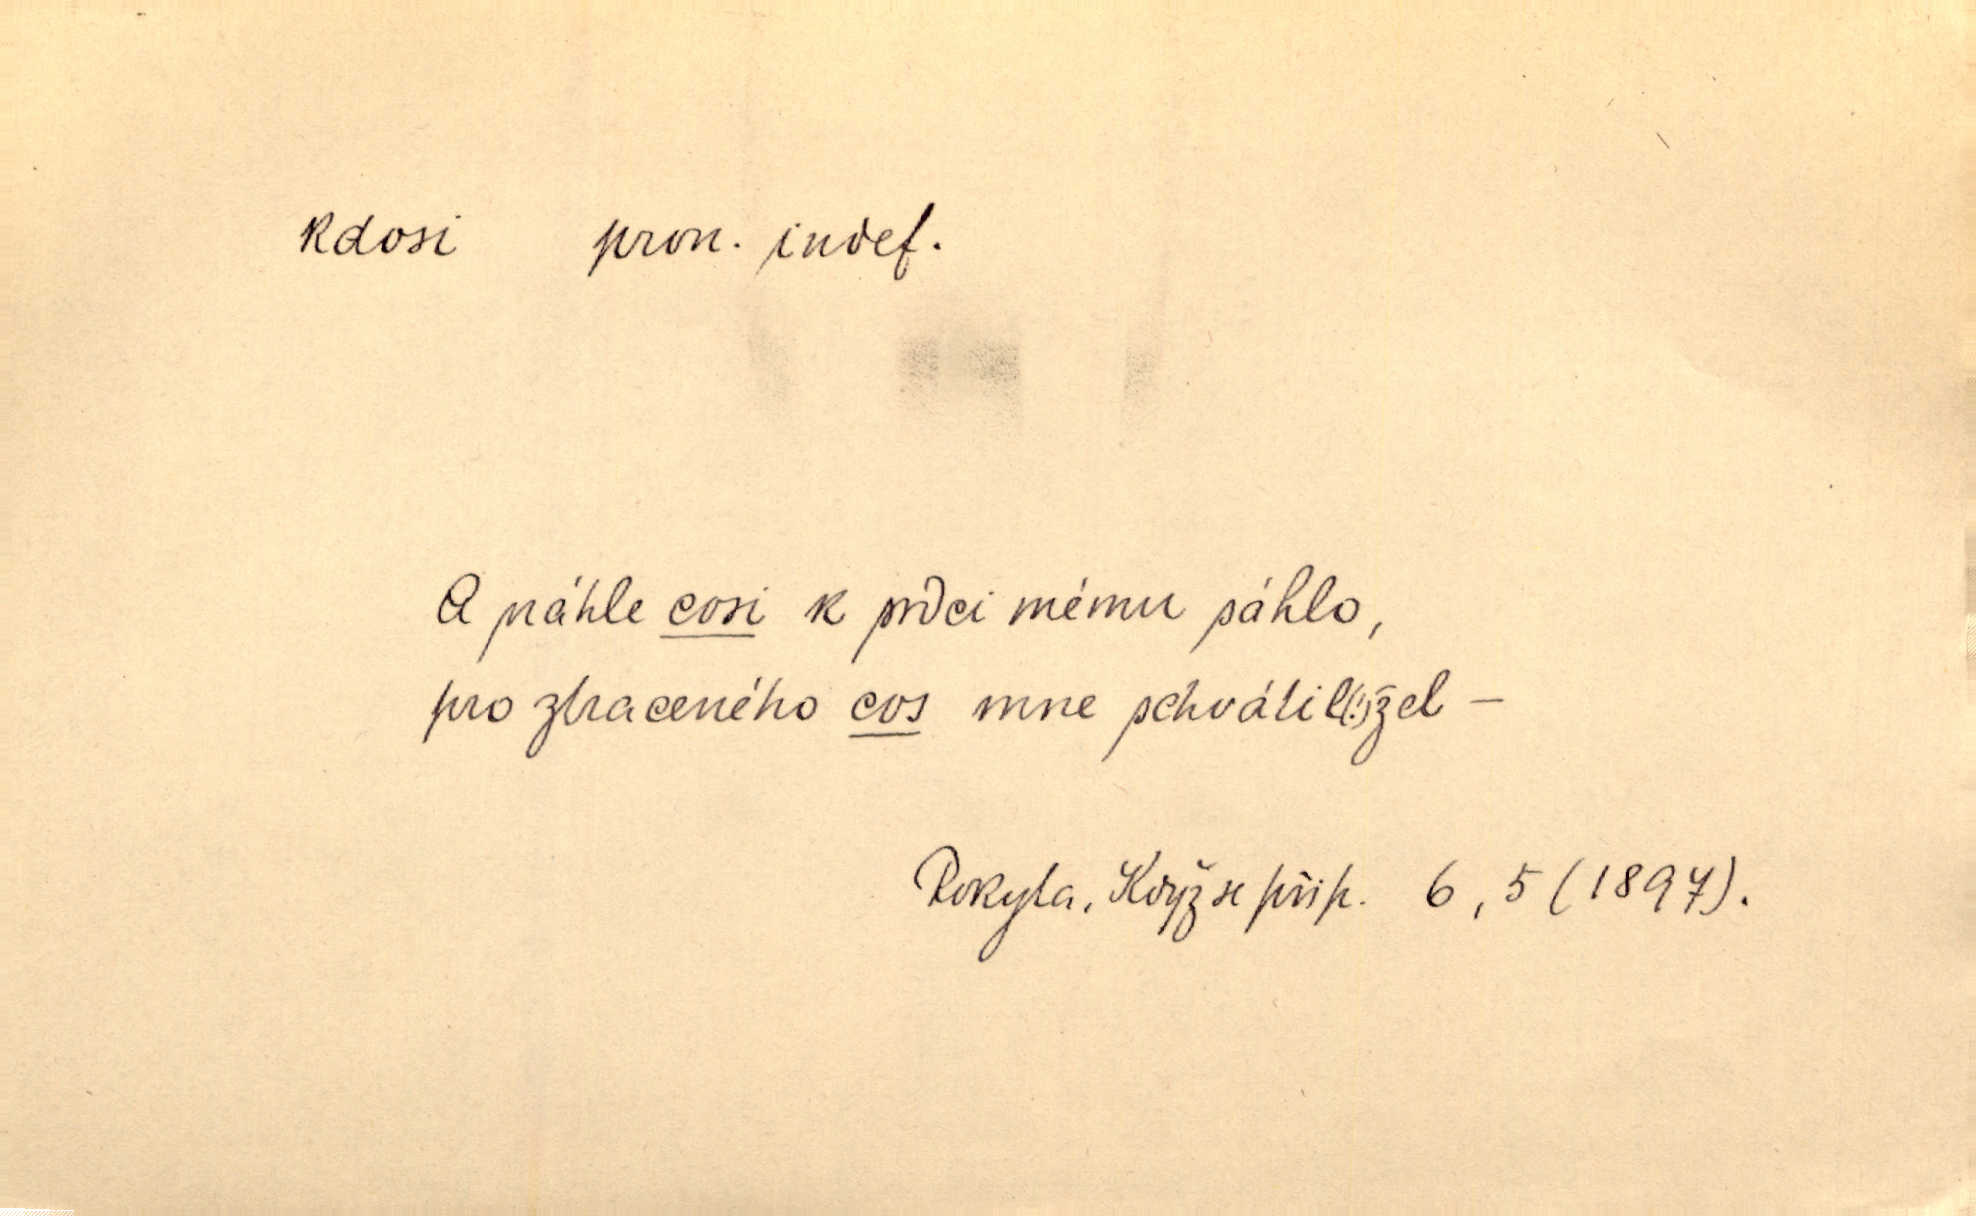 kdosi pron. indef.
A náhle cosi k srdci mému sáhlo,
pro ztraceného cos mne schvátil(!)žel –
Rokyta, Když se přip. 6, 5 (1897).